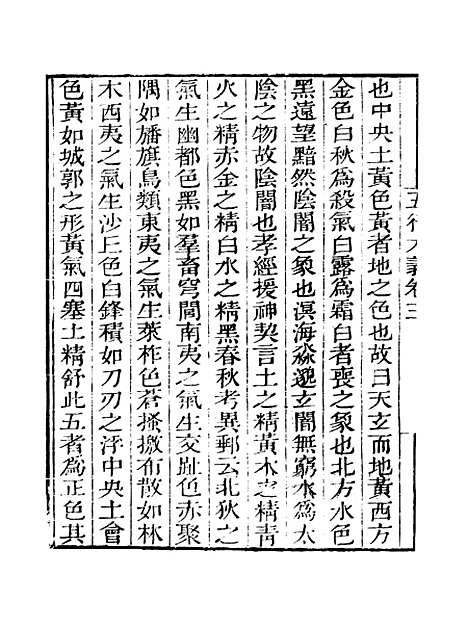 五行大義卷三
也中央土黃色黃者地之色也故曰天玄而地黃西方
金色白秋爲殺氣白露爲霜白者喪之象也北方水色
黑遠望黯然陰闇之象也溟海淼邈玄闇無窮水爲太
陰之物故陰闇也孝經援神契言土之精黃木之精青
火之精赤金之精白水之精黑春秋考異郵云北狄之
氣生幽都色黑如羣畜穹閭南夷之氣生交趾色赤聚
隅如旛旗鳥類東夷之氣生萊柞色蒼搔撽布散如林
木西夷之氣生沙丘色白鋒積如刀刃之浮中央土會
色黃如城郭之形黃氣四塞土精舒此五者爲正色其